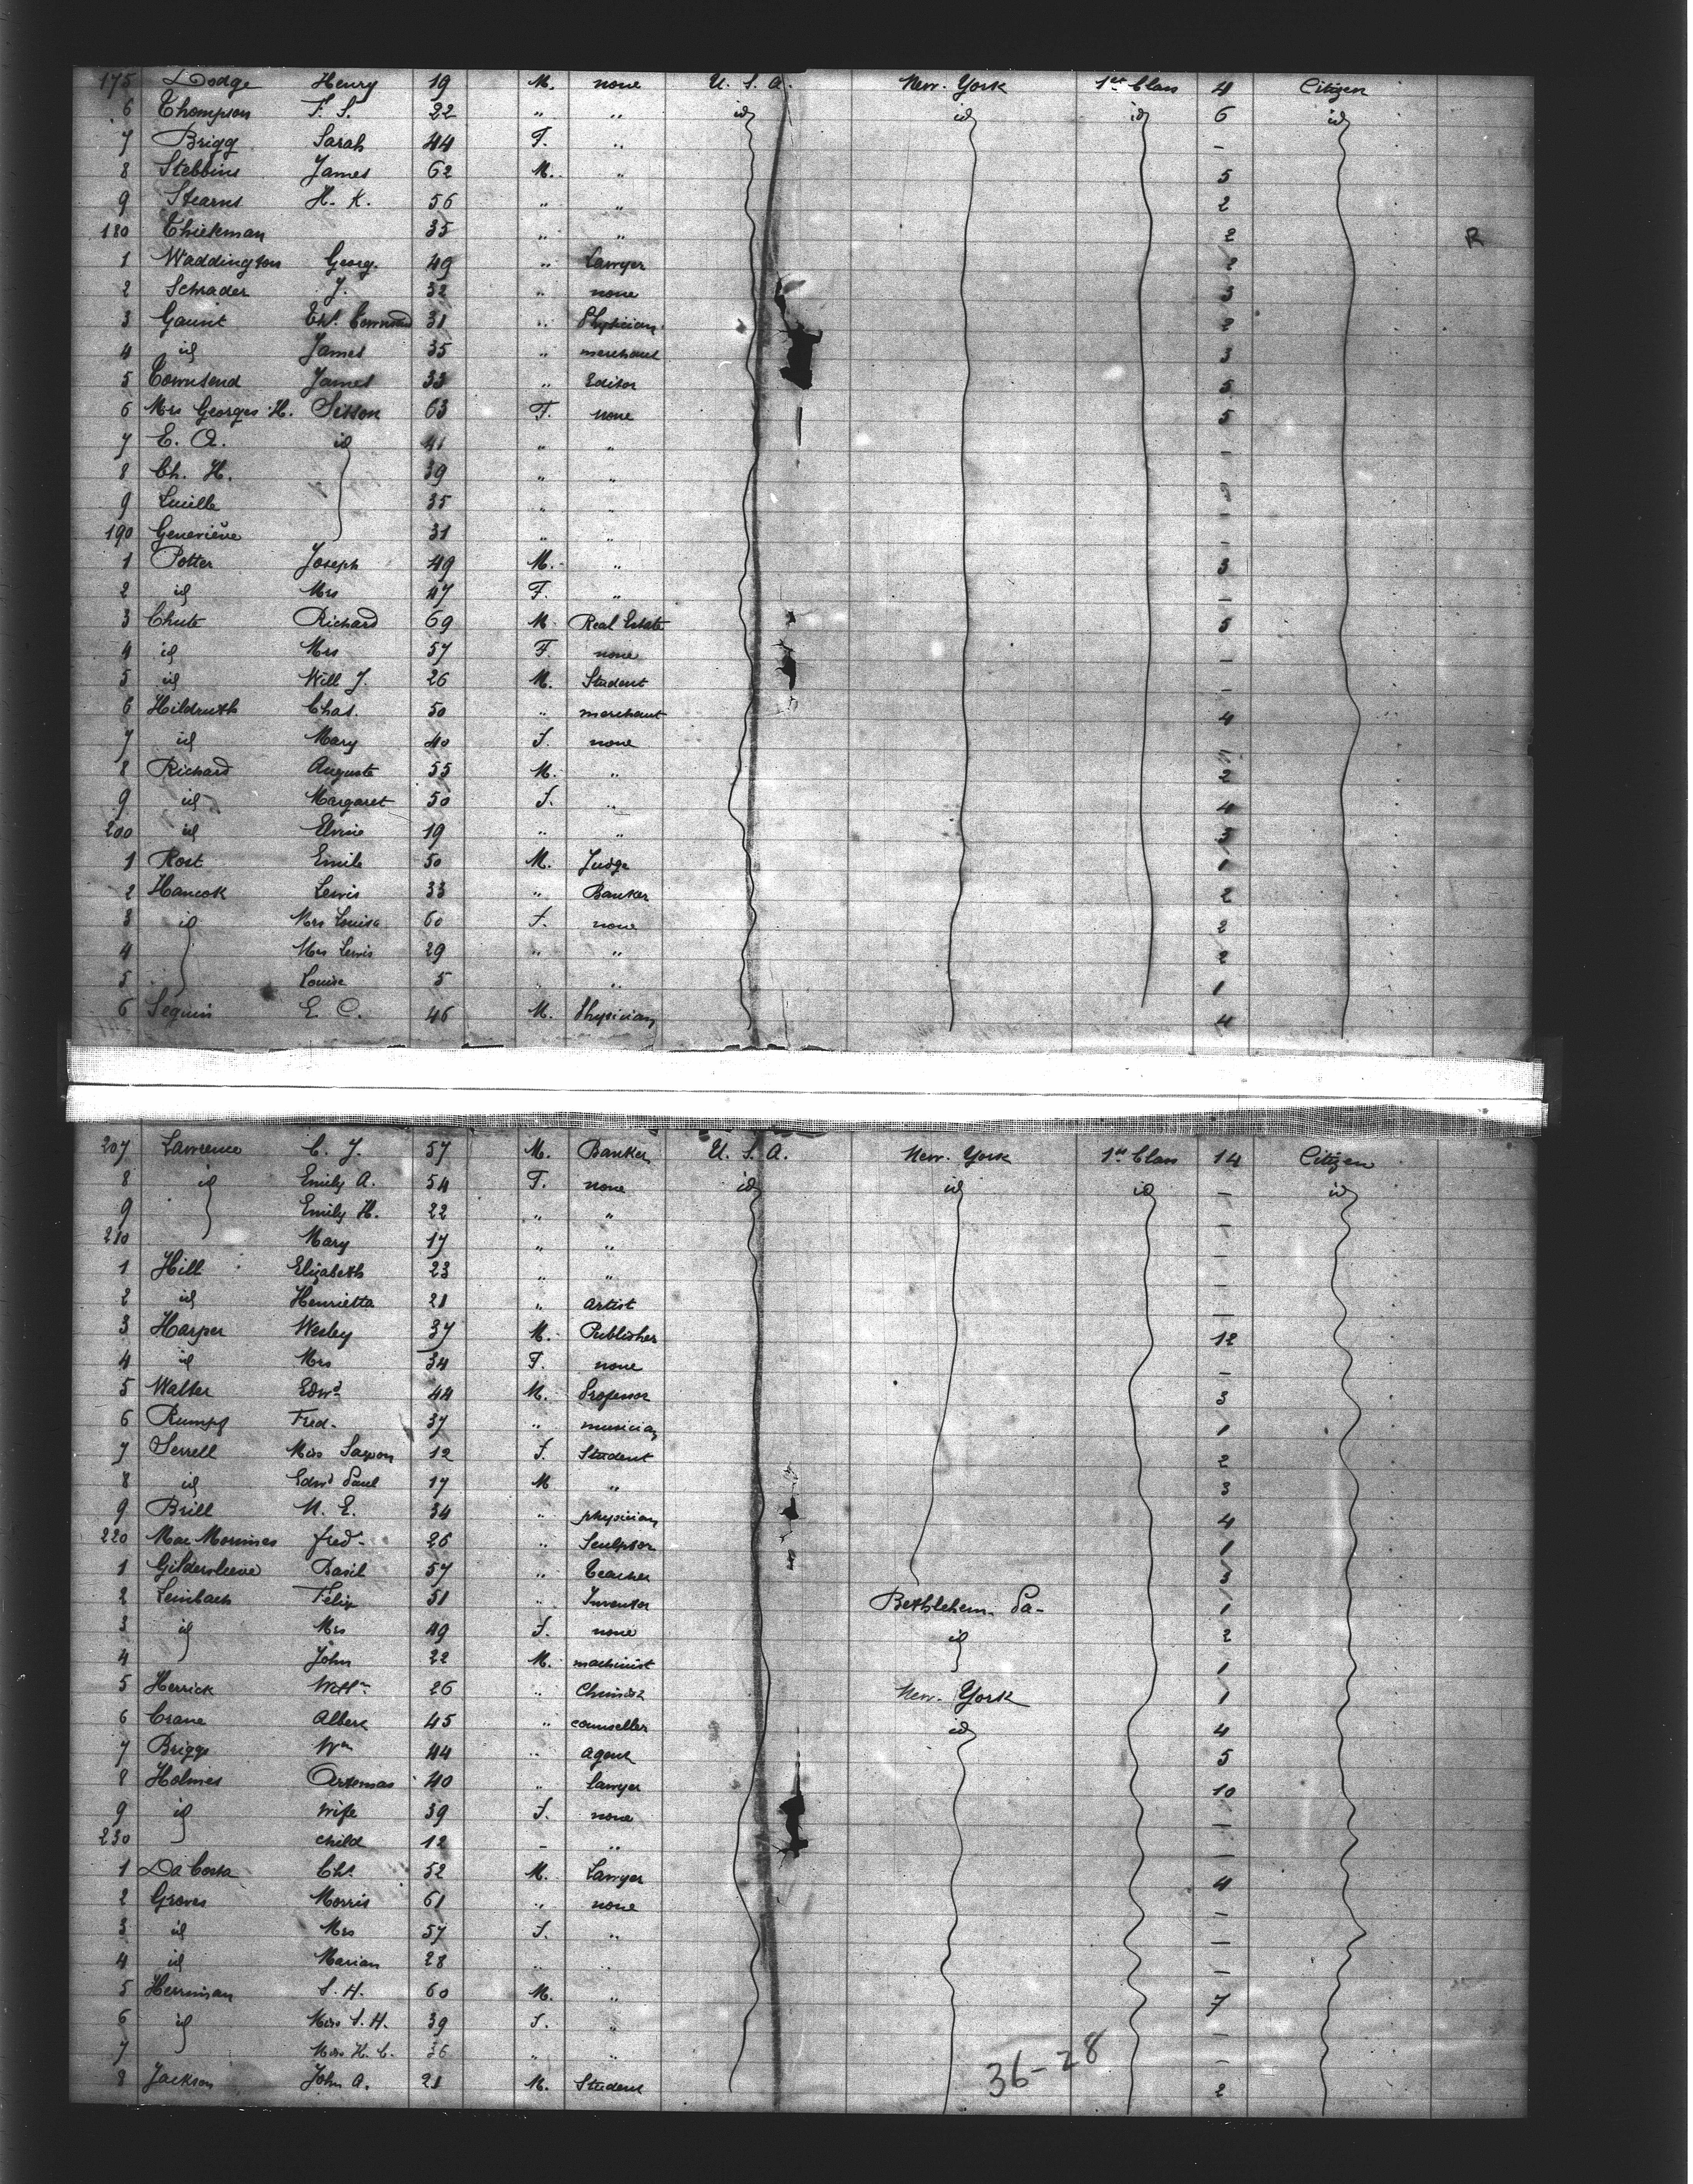 175 Dodge Henry 19 M. none U. S. A. New. York 1st Class 4 Citizen
6 Thompson F. S. 22 " " id id id 6 id
7 Brigg Sarah 44 F. " -
8 Stebbins James 62 M. " 5
9 Stearns H. K. 56 " " 2
180 Thiekman 35 " " 2 R
1 Waddington Georg. 49 " Lawyer 2
2 Schrader J. 32 " none 3
3 Gaunt 31 " Physician 2
4 id James 35 " merchant 3
5 Townsend James 33 " Editor 5
6 Mrs Georges H. Sisson 63 F. none 5
7 E. A. id 41 " " -
8 Ch. H. 39 " "
9 Lucille 35 " " -
190 Geneviève 31 " " -
1 Potter Joseph 49 M. " 3
2 id Mrs 47 F. " -
3 Chute Richard 69 M. Real Estate 5
4 id Mrs 57 F. none -
5 id Will J. 26 M. Student -
6 Hildruth Chas. 50 " merchant 4
7 id Mary 40 F. none
8 Richard Auguste 55 M. " 2
9 id Margaret 50 F. " 4
200 id Elvine 19 " " 3
1 Rost Emile 50 M. Judge 1
2 Hancok Lewis 33 " Banker 2
3 id Mrs Louisa 60 F. none 2
4 Mrs Lewis 29 " " 2
5 Louise 5 " " 1
6 Seguin E. C. 46 M. Physician 4
207 Lawrence C. J. 57 M. Banker U. S. A. New. York 1st Class 14 Citizen
8 id Emily A. 54 F. none id id id - id
9 Emily H. 22 " " -
210 Mary 17 " " -
1 Hill Elizabeth 23 " " -
2 id Henrietta 21 " artist -
3 Harper Wesley 37 M. Publisher 12
4 id Mrs 34 F. none -
5 Walter Edwd 44 M. Professor 3
6 Rumpf Fred. 37 " musician 1
7 Serrell Miss 12 F. Student 2
8 id Edwd Paul 17 M " 3
9 Brill N. E. 34 " physician 4
220 Mac Monnies fred. 26 " Sculptor 1
1 Gildersleeve Basil 57 " Teacher 3
2 Leinbach Félix 51 " Inventor Bethlehem. Pa- 1
3 id Mrs 49 F. none id 2
4 John 22 M. machinist 1
5 Herrick Willm 26 " Chimist New. York 1
6 Crane Albert 45 " counseller id 4
7 Briggs Wm 44 " agent 5
8 Holmes Artemas 40 " lawyer 10
9 id Wife 39 F. none -
230 child 12 - " -
1 Da Costa Chs. 52 M. Lawyer 4
2 Groves Morris 61 " none -
3 id Mrs 57 F. " -
4 id Marian 28 " " -
5 Herriman S. H. 60 M. " 7
6 id Miss S. H. 39 F. " -
7 Miss H. C. 36 " " -
8 Jackson John A. 21 M. Student 2
36-28